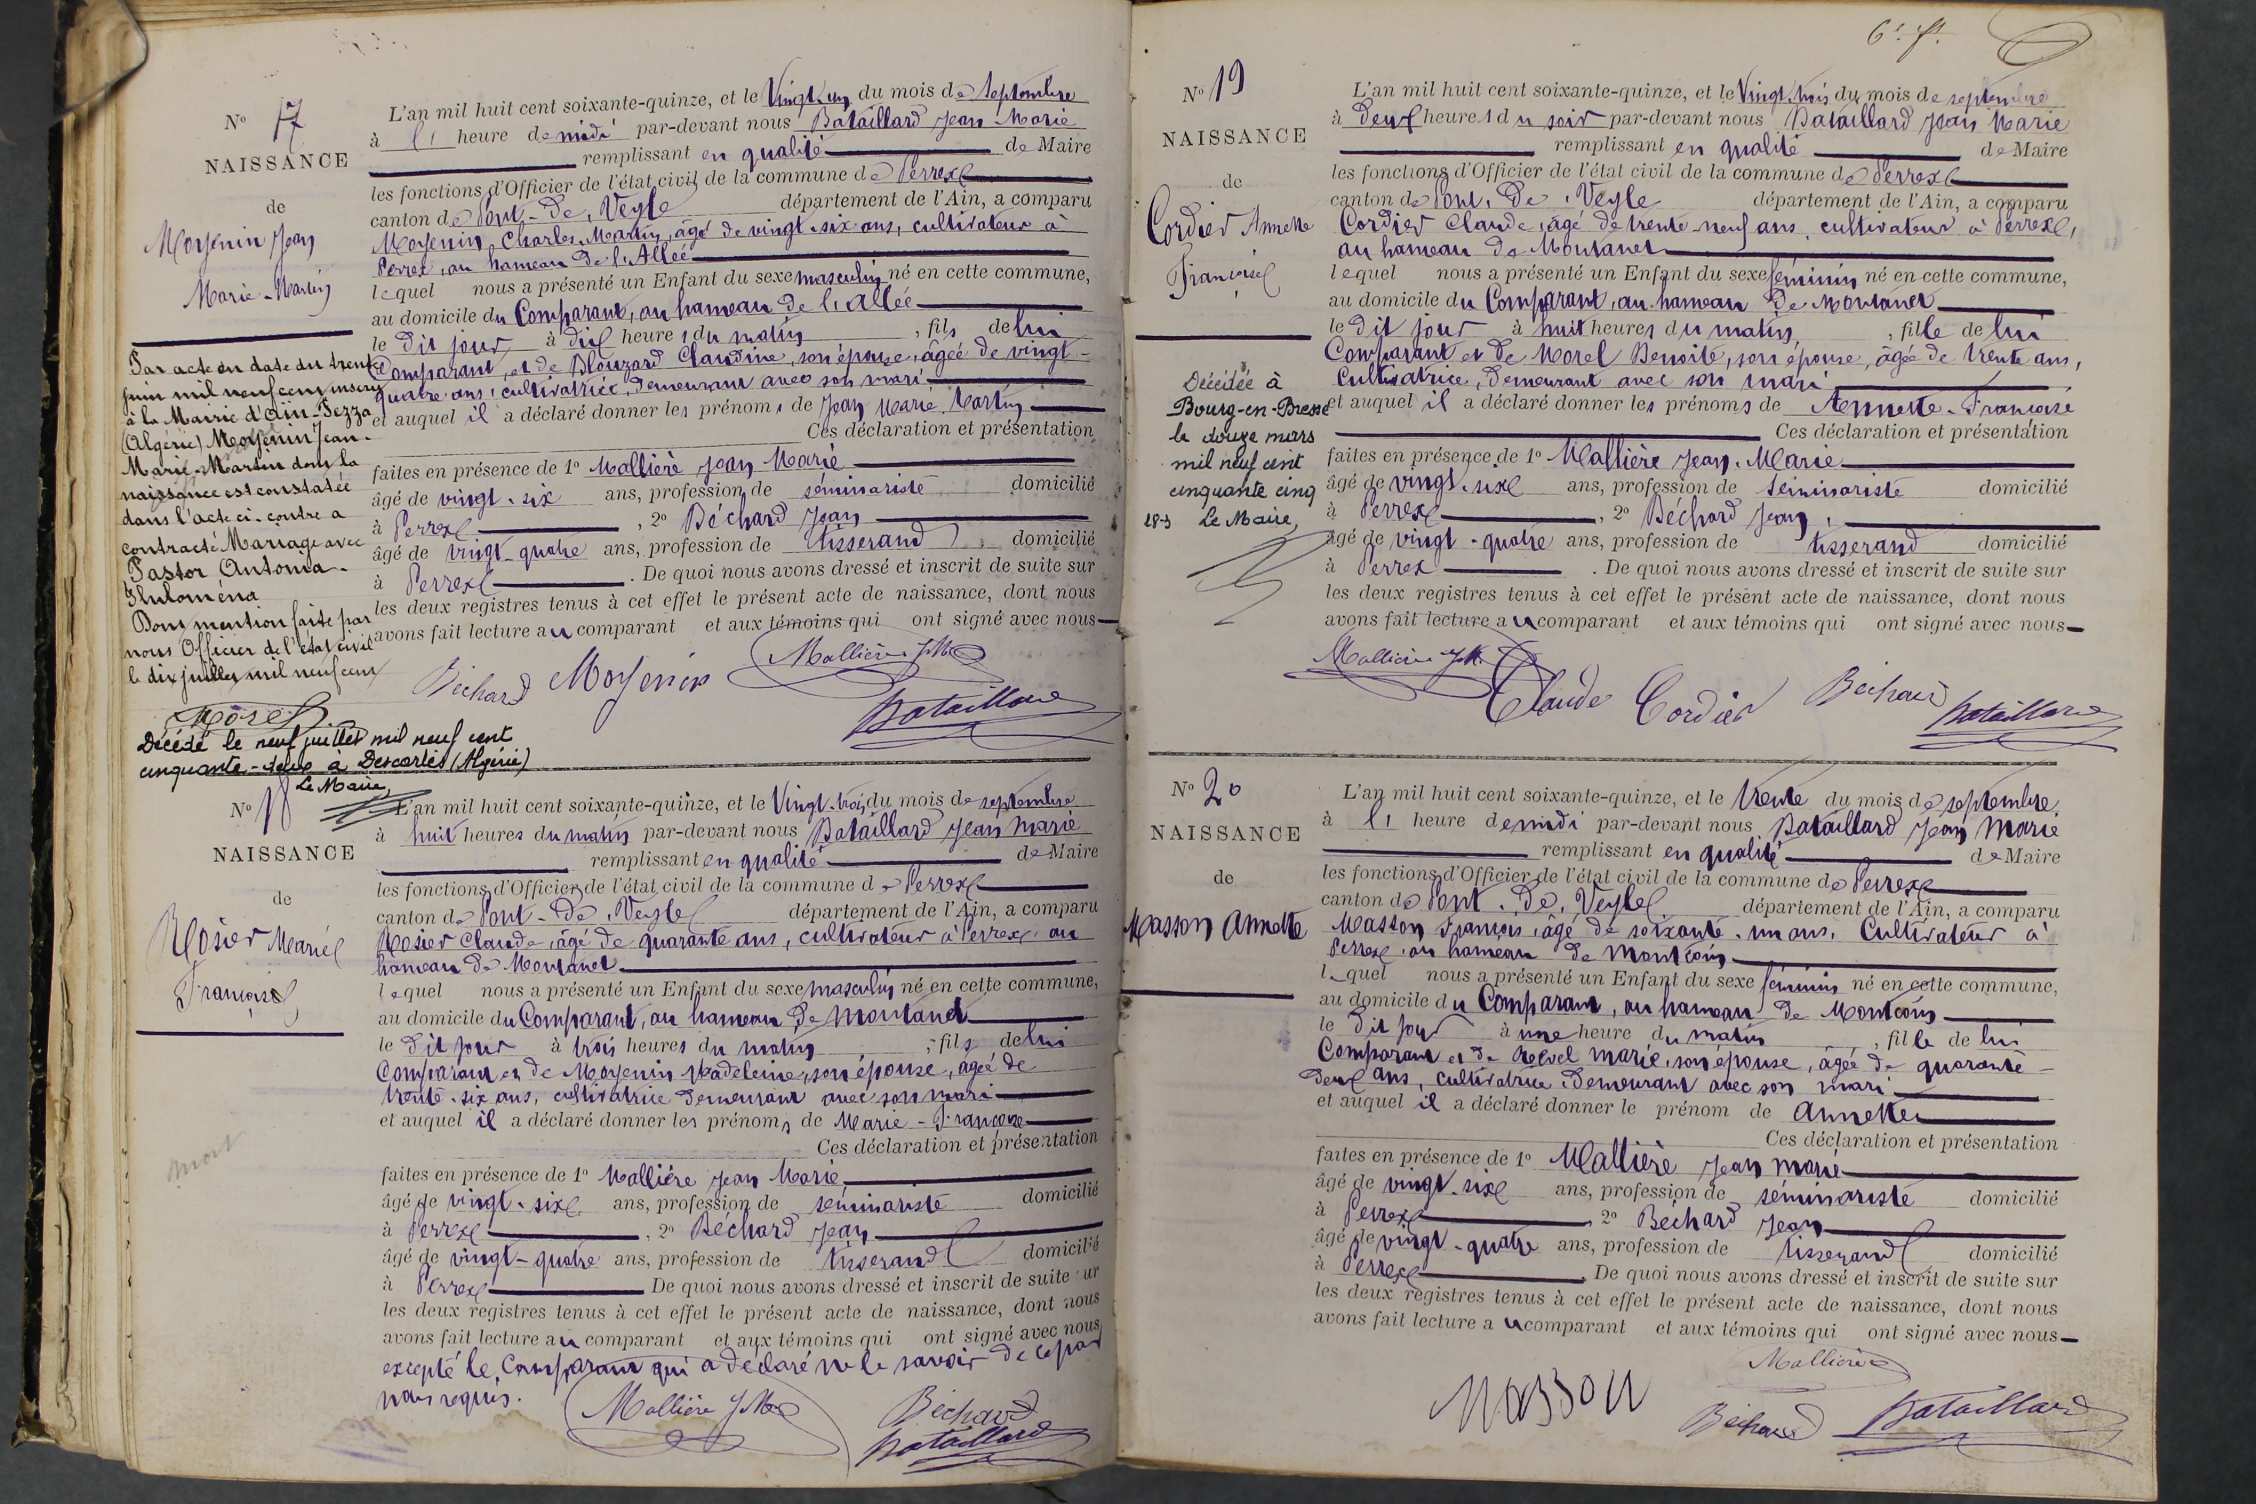 N° 17
NAISSANCE
de
Moyenin Jean
Marie-Martin
Par acte en date du trente
juin mil neuf cent, inscrit
à la Mairie d'Aïn-Fezza
(Algérie) Moyenin Jean-
Marie-Martin dont la
naissance est constatée
dans l'acte ci-contre a
contracté Mariage avec
Pastor Antonia-
Philoména
Dont mention faite par
nous Officier de l'état civil
le dix juillet mil neuf cent
Morel
Décédé le neuf juillet mil neuf cent
cinquante-deux à Descartes (Algérie)
Le Maire,
L'an mil huit cent soixante-quinze, et le Vingt-un du mois de Septembre
à l' heure de midi par-devant nous Bataillard Jean Marie
remplissant en qualité de Maire
les fonctions d'Officier de l'état civil de la commune de Perrex
canton de Pont-De-Veyle département de l'Ain, a comparu
Moyenin Charles Martin, âgé de vingt-six ans, cultivateur à
Perrex, au hameau de l'Allée
lequel nous a présenté un Enfant du sexe masculin né en cette commune,
au domicile du Comparant, au hameau de l'allée
le dit jour à dix heures du matin, fils de lui
Comparant, et de Blouzard Claudine, son épouse, âgée de vingt-
quatre ans, cultivatrice, demeurant avec son mari
et auquel il a déclaré donner les prénoms de Jean Marie Martin
Ces déclaration et présentation
faites en présence de 1° Mallière Jean-Marie
âgé de vingt-six ans, profession de séminariste domicilié
à Perrex, 2° Béchard Jean
âgé de vingt-quatre ans, profession de tisserand domicilié
à Perrex. De quoi nous avons dressé et inscrit de suite sur
les deux registres tenus à cet effet le présent acte de naissance, dont nous
avons fait lecture au comparant et aux témoins qui ont signé avec nous
Béchard Moyenin Mallière J M
Bataillard
N° 18
NAISSANCE
de
Rosier Marie
Françoise
mort
L'an mil huit cent soixante-quinze, et le Vingt-trois du mois de septembre
à huit heures du matin par-devant nous Bataillard Jean Marie
remplissant en qualité de Maire
les fonctions d'Officier de l'état civil de la commune de Perrex
canton de Pont-De-Veyle département de l'Ain, a comparu
Rosier Claude, âgé de quarante ans, cultivateur à Perrex au
hameau de Montanet
lequel nous a présenté un Enfant du sexe masculin né en cette commune,
au domicile du Comparant, au hameau de Montanet
le dit jour à trois heures du matin, fils de lui
Comparant et de Moyenin Madeleine, son épouse, âgée de
trente-six ans, cultivatrice demeurant avec son mari
et auquel il a déclaré donner les prénoms de Marie-Françoise
Ces déclaration et présentation
faites en présence de 1° Mallière Jean Marie
âgé de vingt-six ans, profession de séminariste domicilié
à Perrex, 2° Béchard Jean
âgé de vingt-quatre ans, profession de tisserand domicilié
à Perrex De quoi nous avons dressé et inscrit de suite sur
les deux registres tenus à cet effet le présent acte de naissance, dont nous
avons fait lecture au comparant et aux témoins qui ont signé avec nous
excepté le Comparant qui a déclaré ne le savoir de ce par
nous requis.
Mallière J M Béchard
Bataillard
N° 19
NAISSANCE
de
Cordier Annette
Françoise
Décédée à
Bourg-en-Bresse
le douze mars
mil neuf cent
cinquante cinq
Le Maire,
L'an mil huit cent soixante-quinze, et le Vingt-trois du mois de septembre
à Deux heures du soir par-devant nous Bataillard Jean Marie
remplissant en qualité de Maire
les fonctions d'Officier de l'état civil de la commune de Perrex
canton de Pont-De-Veyle département de l'Ain, a comparu
Cordier Claude, âgé de trente-neuf ans, cultivateur à Perrex,
au hameau de Montanet
lequel nous a présenté un Enfant du sexe féminin né en cette commune,
au domicile du Comparant, au hameau de Montanet
le dit jour à huit heures du matin, fille de lui
Comparant et de Morel Benoite, son épouse, âgée de trente ans,
Cultivatrice, demeurant avec son mari
et auquel il a déclaré donner les prénoms de Annette-Françoise
Ces déclaration et présentation
faites en présence de 1° Mallière Jean-Marie
âgé de vingt-six ans, profession de séminariste domicilié
à Perrex, 2° Béchard Jean,
âgé de vingt-quatre ans, profession de tisserand domicilié
à Perrex. De quoi nous avons dressé et inscrit de suite sur
les deux registres tenus à cet effet le présent acte de naissance, dont nous
avons fait lecture au comparant et aux témoins qui ont signé avec nous
Mallière J M
Claude Cordier Béchard
Bataillard
N° 20
NAISSANCE
de
Masson Annette
L'an mil huit cent soixante-quinze, et le trente du mois de septembre
à l' heure de midi par-devant nous Bataillard Jean Marie
remplissant en qualité de Maire
les fonctions d'Officier de l'état civil de la commune de Perrex
canton de Pont-De-Veyle département de l'Ain, a comparu
Masson François, âgé de soixante-un ans, Cultivateur à
Perrex, au hameau de Montcoin
lequel nous a présenté un Enfant du sexe féminin né en cette commune,
au domicile du Comparant, au hameau de Montcoin
le dit jour à une heure du matin, fille de lui
Comparant et de marie, son épouse, âgée de quarante-
deux ans, cultivatrice demeurant avec son mari
et auquel il a déclaré donner le prénom de Annette
Ces déclaration et présentation
faites en présence de 1° Mallière Jean Marie
âgé de vingt-six ans, profession de séminariste domicilié
à Perrex, 2° Béchard Jean
âgé de vingt-quatre ans, profession de tisserand domicilié
à Perrex. De quoi nous avons dressé et inscrit de suite sur
les deux registres tenus à cet effet le présent acte de naissance, dont nous
avons fait lecture au comparant et aux témoins qui ont signé avec nous
Mallière
Masson Béchard Bataillard